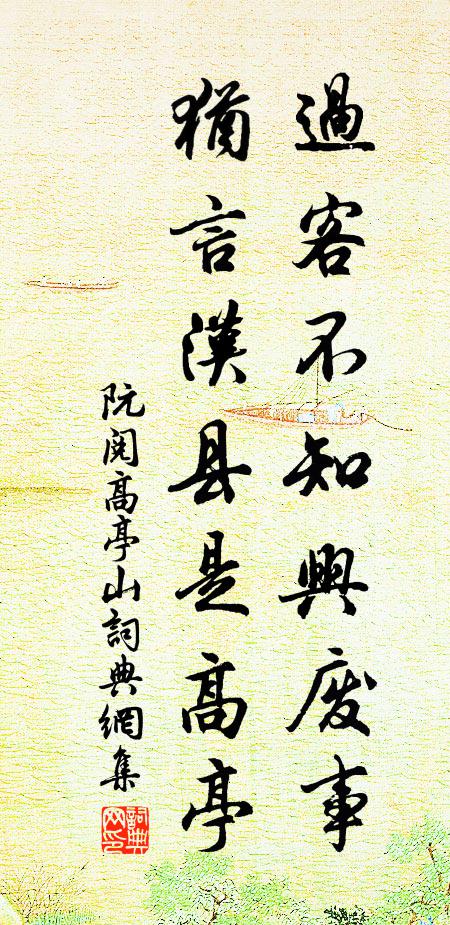 過客不知興废事
猶言漢县是高亭
阮閱高亭山詞典網集
詞典网印